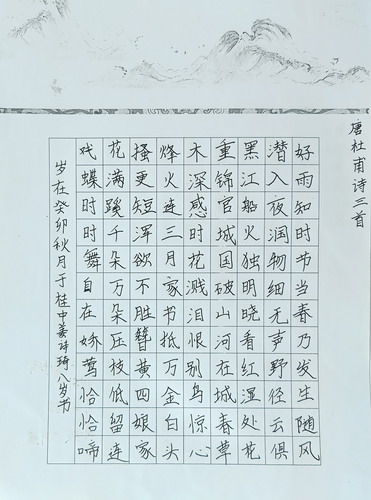 唐杜甫诗三首
好雨知时节当春乃发生随风
潜入夜润物细无声野径云俱
黑江船火独明晓看红湿处花
重锦官城国破山河在城春草
木深感时花溅泪恨别鸟惊心
烽火连三月家书抵万金白头
搔更短浑欲不胜簪黄四娘家
花满蹊千朵万朵压枝低留连
戏蝶时时舞自在娇莺恰恰啼
岁在癸卯秋月于桂中姜诗琦八岁书